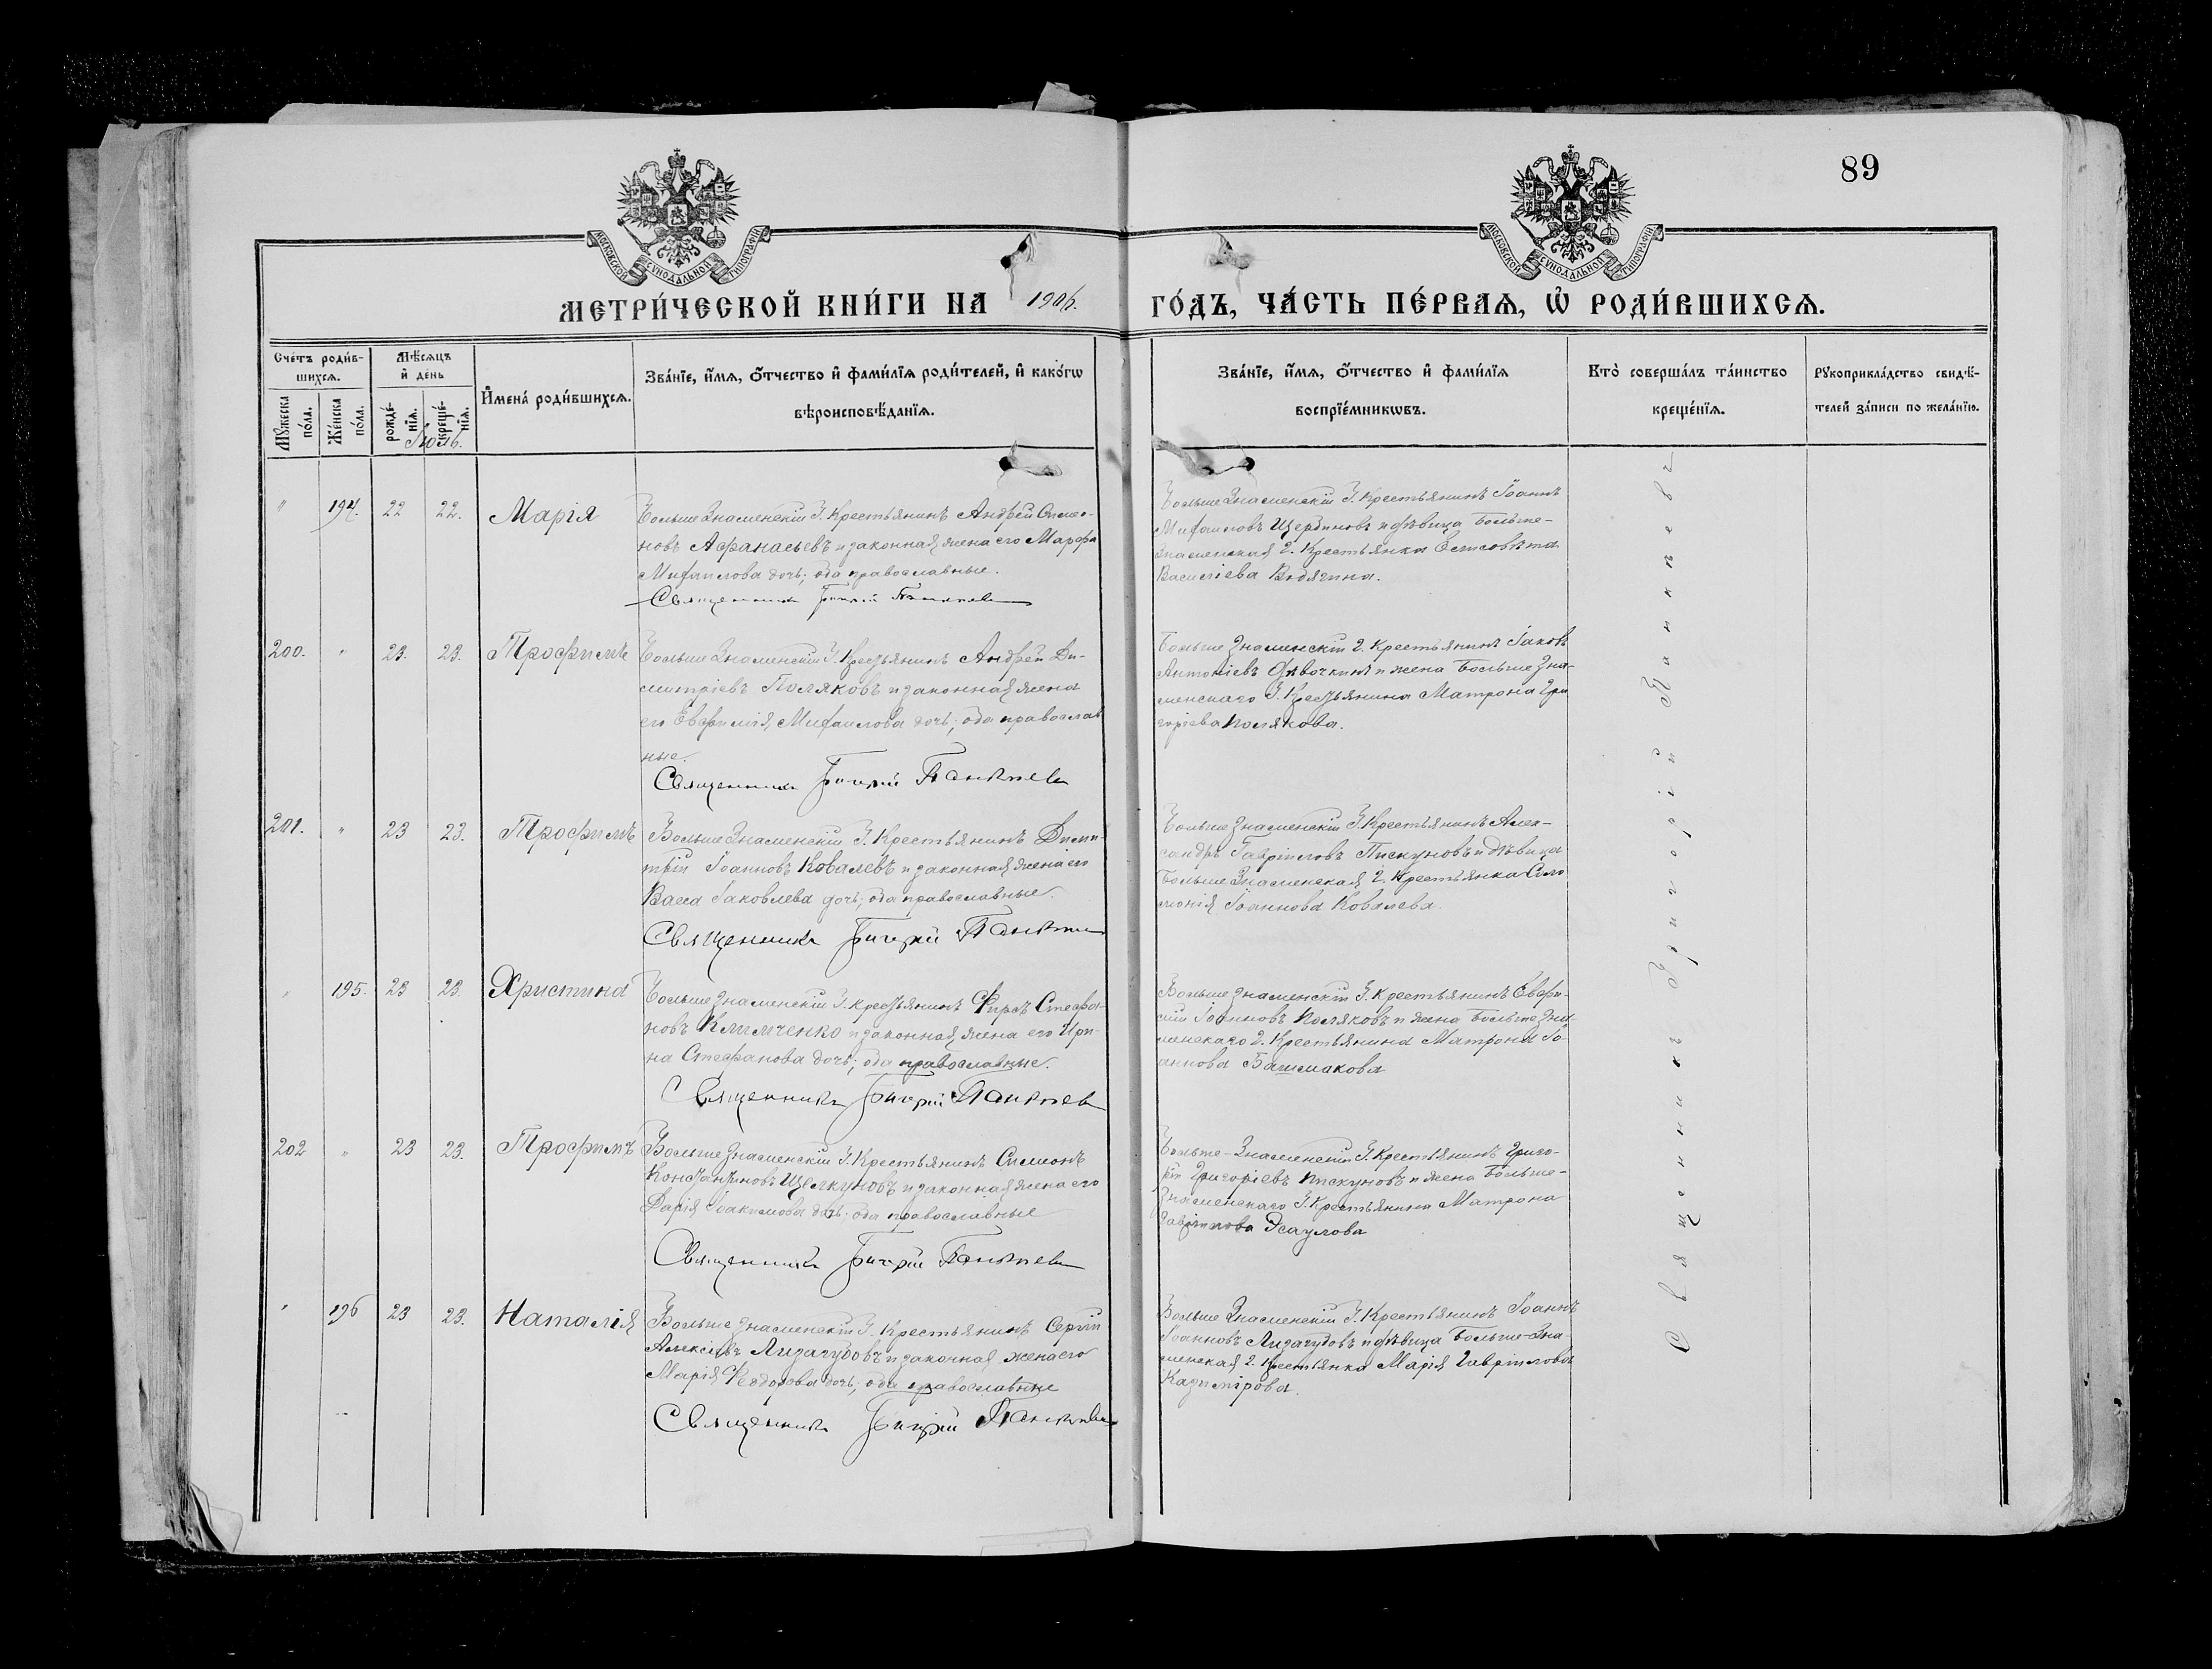 89
МОСКОВСКОЙ СУНОДАЛЬНОЙ ТИПОГРАФІИ
МОСКОВСКОЙ СУНОДАЛЬНОЙ ТИПОГРАФІИ
МЕТРИ́ЧЕСКОЙ КНИ́ГИ НА 1906. ГО́ДЪ, ЧА́СТЬ ПЕ́РВАѦ, Ѡ҆ РОДИ́ВШИХСѦ.
Сче́тъ роди́в-
шихсѧ.
Мѣ́сѧцъ
и҆ де́нь
Мꙋ́жеска по́ла.
Же́нска по́ла.
рожде́-нїѧ.
креще́-нїѧ.
И҆мена̀ роди́вшихсѧ.
Зва́нїе, и҆́мѧ, ѻ҆́тчество и҆ фами́лїѧ роди́телей, и҆ како́гѡ
вѣроисповѣ́данїѧ.
Зва́нїе, и҆́мѧ, ѻ҆́тчество и҆ фами́лїѧ
воспрїе́мникѡвъ.
Кто̀ соверша́лъ та́инство
креще́нїѧ.
Рꙋкоприкла́дство свидѣ́-
телей за́писи по жела́нїю.
Іюль.
" 194. 22 22. Марія
Больше Знаменскій Г. Крестьянинъ Андрей Симео-
новъ Афанасьевъ и законная жена его Марфа
Михаилова дочь; оба православные.
Священникъ Григорій
Больше Знаменскій Г. Крестьянинъ Іоаннъ
Михаиловъ Щербиновъ и дѣвица Больше-
Знаменская Г. Крестьянка Елисовета
Василіева
200. " 23. 23. Трофимъ
Больше Знаменскій Г. Крестьянинъ Андрей Ди-
митріевъ Поляковъ и законная жена
его Евфимія Михаилова дочь; оба православ
ные.
Священникъ Григорій
Больше Знаменскій Г. Крестьянинъ Іаковъ
Антоніевъ Дѣвочкинъ и жена Больше Зна-
менскаго Г. Крестьянина Матрона Гри
горіева Полякова.
201. " 23 23. Трофимъ
Больше Знаменскій Г. Крестьянинъ Дими-
трій Іоанновъ Ковалевъ и законная жена его
Васса Іаковлева дочь; оба православные.
Священникъ Григорій
Больше Знаменскій Г. Крестьянинъ Алек-
сандръ Гавріиловъ Пискуновъ и дѣвица
Больше Знаменская Г. Крестьянка Соло
монія Іоаннова Ковалева.
" 195. 23 23. Христина
Больше Знаменскій Г. Крестьянинъ Фирсъ Стефа-
новъ Климченко и законная жена его Ири-
на Стефанова дочь; оба православные.
Священникъ Григорій
Больше Знаменскій Г. Крестьянинъ Евфи-
мій Іоанновъ Поляковъ и жена Больше Зна-
менскаго Г. Крестьянина Матрона Іо-
аннова Башмакова
202 " 23 23. Трофимъ
Больше Знаменскій Г. Крестьянинъ Симеонъ
Константиновъ Щелкуновъ и законная жена его
Дарія Іоакимова дочь; оба православные
Священникъ Григорій
Больше-Знаменскій Г. Крестьянинъ Григо-
рій Григоріевъ Пискуновъ и жена Больше-
Знаменскаго Г. Крестьянина Матрона
Гавріилова Эсаулова
" 196 23 23. Наталія
Больше Знаменскій Г. Крестьянинъ Сергій
Алексіевъ Лизагубовъ и законная жена его
Марія Феодорова дочь; оба православные
Священникъ Григорій
Больше Знаменскій Г. Крестьянинъ Іоаннъ
Іоанновъ Лизагубовъ и дѣвица Больше-Зна-
менская Г. Крестьянка Марія Гавріилова
Казимірова.
Священникъ Григорій